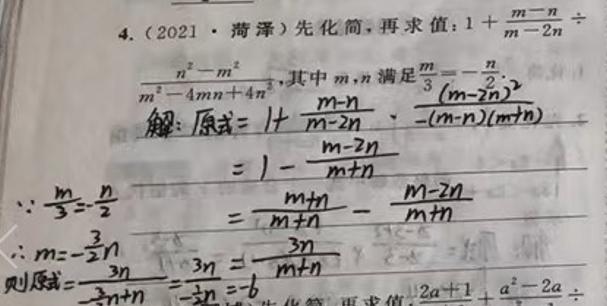 4. (2021 · 菏泽) 先化简,再求值: 1 + \frac{m-n}{m-2n} ÷
\frac{n²-m²}{m²-4mn+4n²}, 其中 m,n 满足 \frac{m}{3} = -\frac{n}{2}.
解: 原式 = 1 + \frac{m-n}{m-2n} · \frac{(m-2n)²}{-(m-n)(m+n)}
= 1 - \frac{m-2n}{m+n}
∵ \frac{m}{3} = -\frac{n}{2}
= \frac{m+n}{m+n} - \frac{m-2n}{m+n}
∴ m = -\frac{3}{2}n
= \frac{3n}{m+n}
则原式 = \frac{3n}{-\frac{3}{2}n+n} = \frac{3n}{-\frac{1}{2}n} = -6
先化简,再求值: \frac{2a+1}{} + \frac{a²-2a}{} ÷